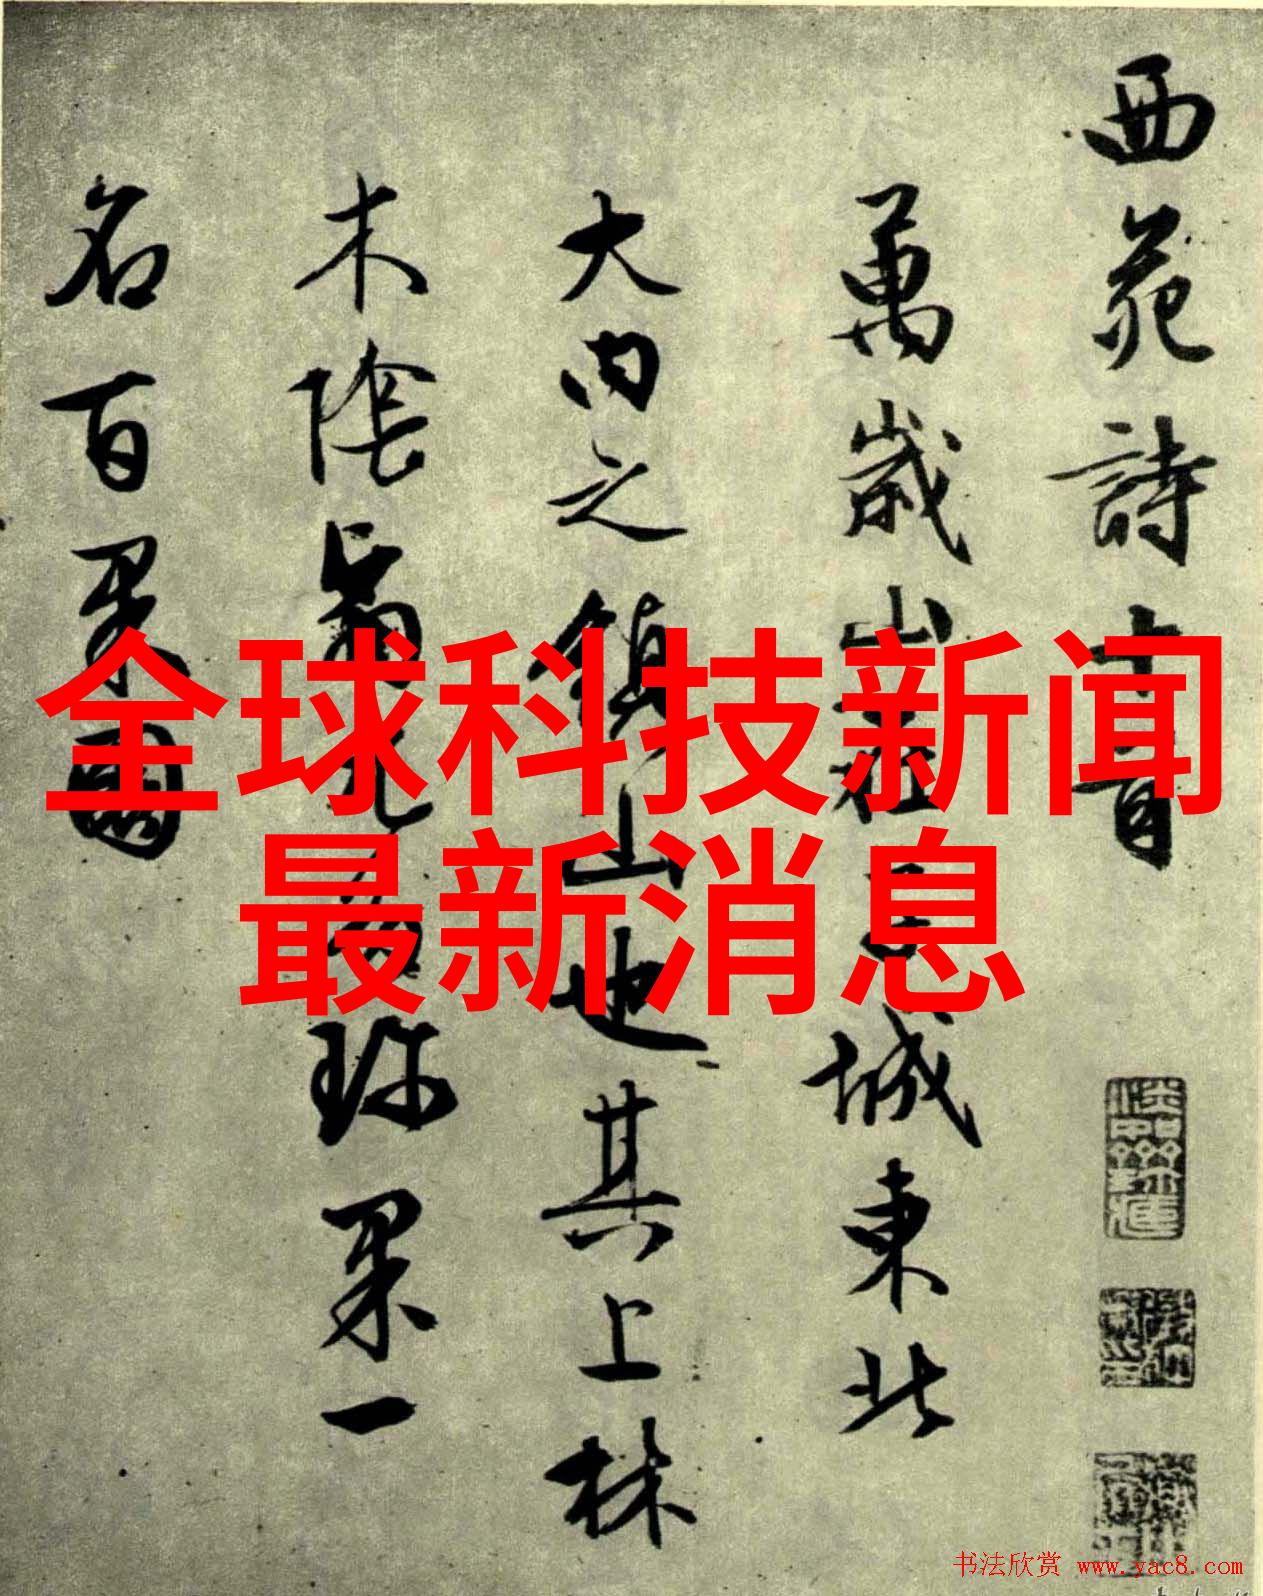 西苑詩十首
萬歲山在子城東北
大內之鎮山也其上林
木陰翳尤多珍果一
名百果園
全球科技新闻
最新消息
书法欣赏 www.yac8.com